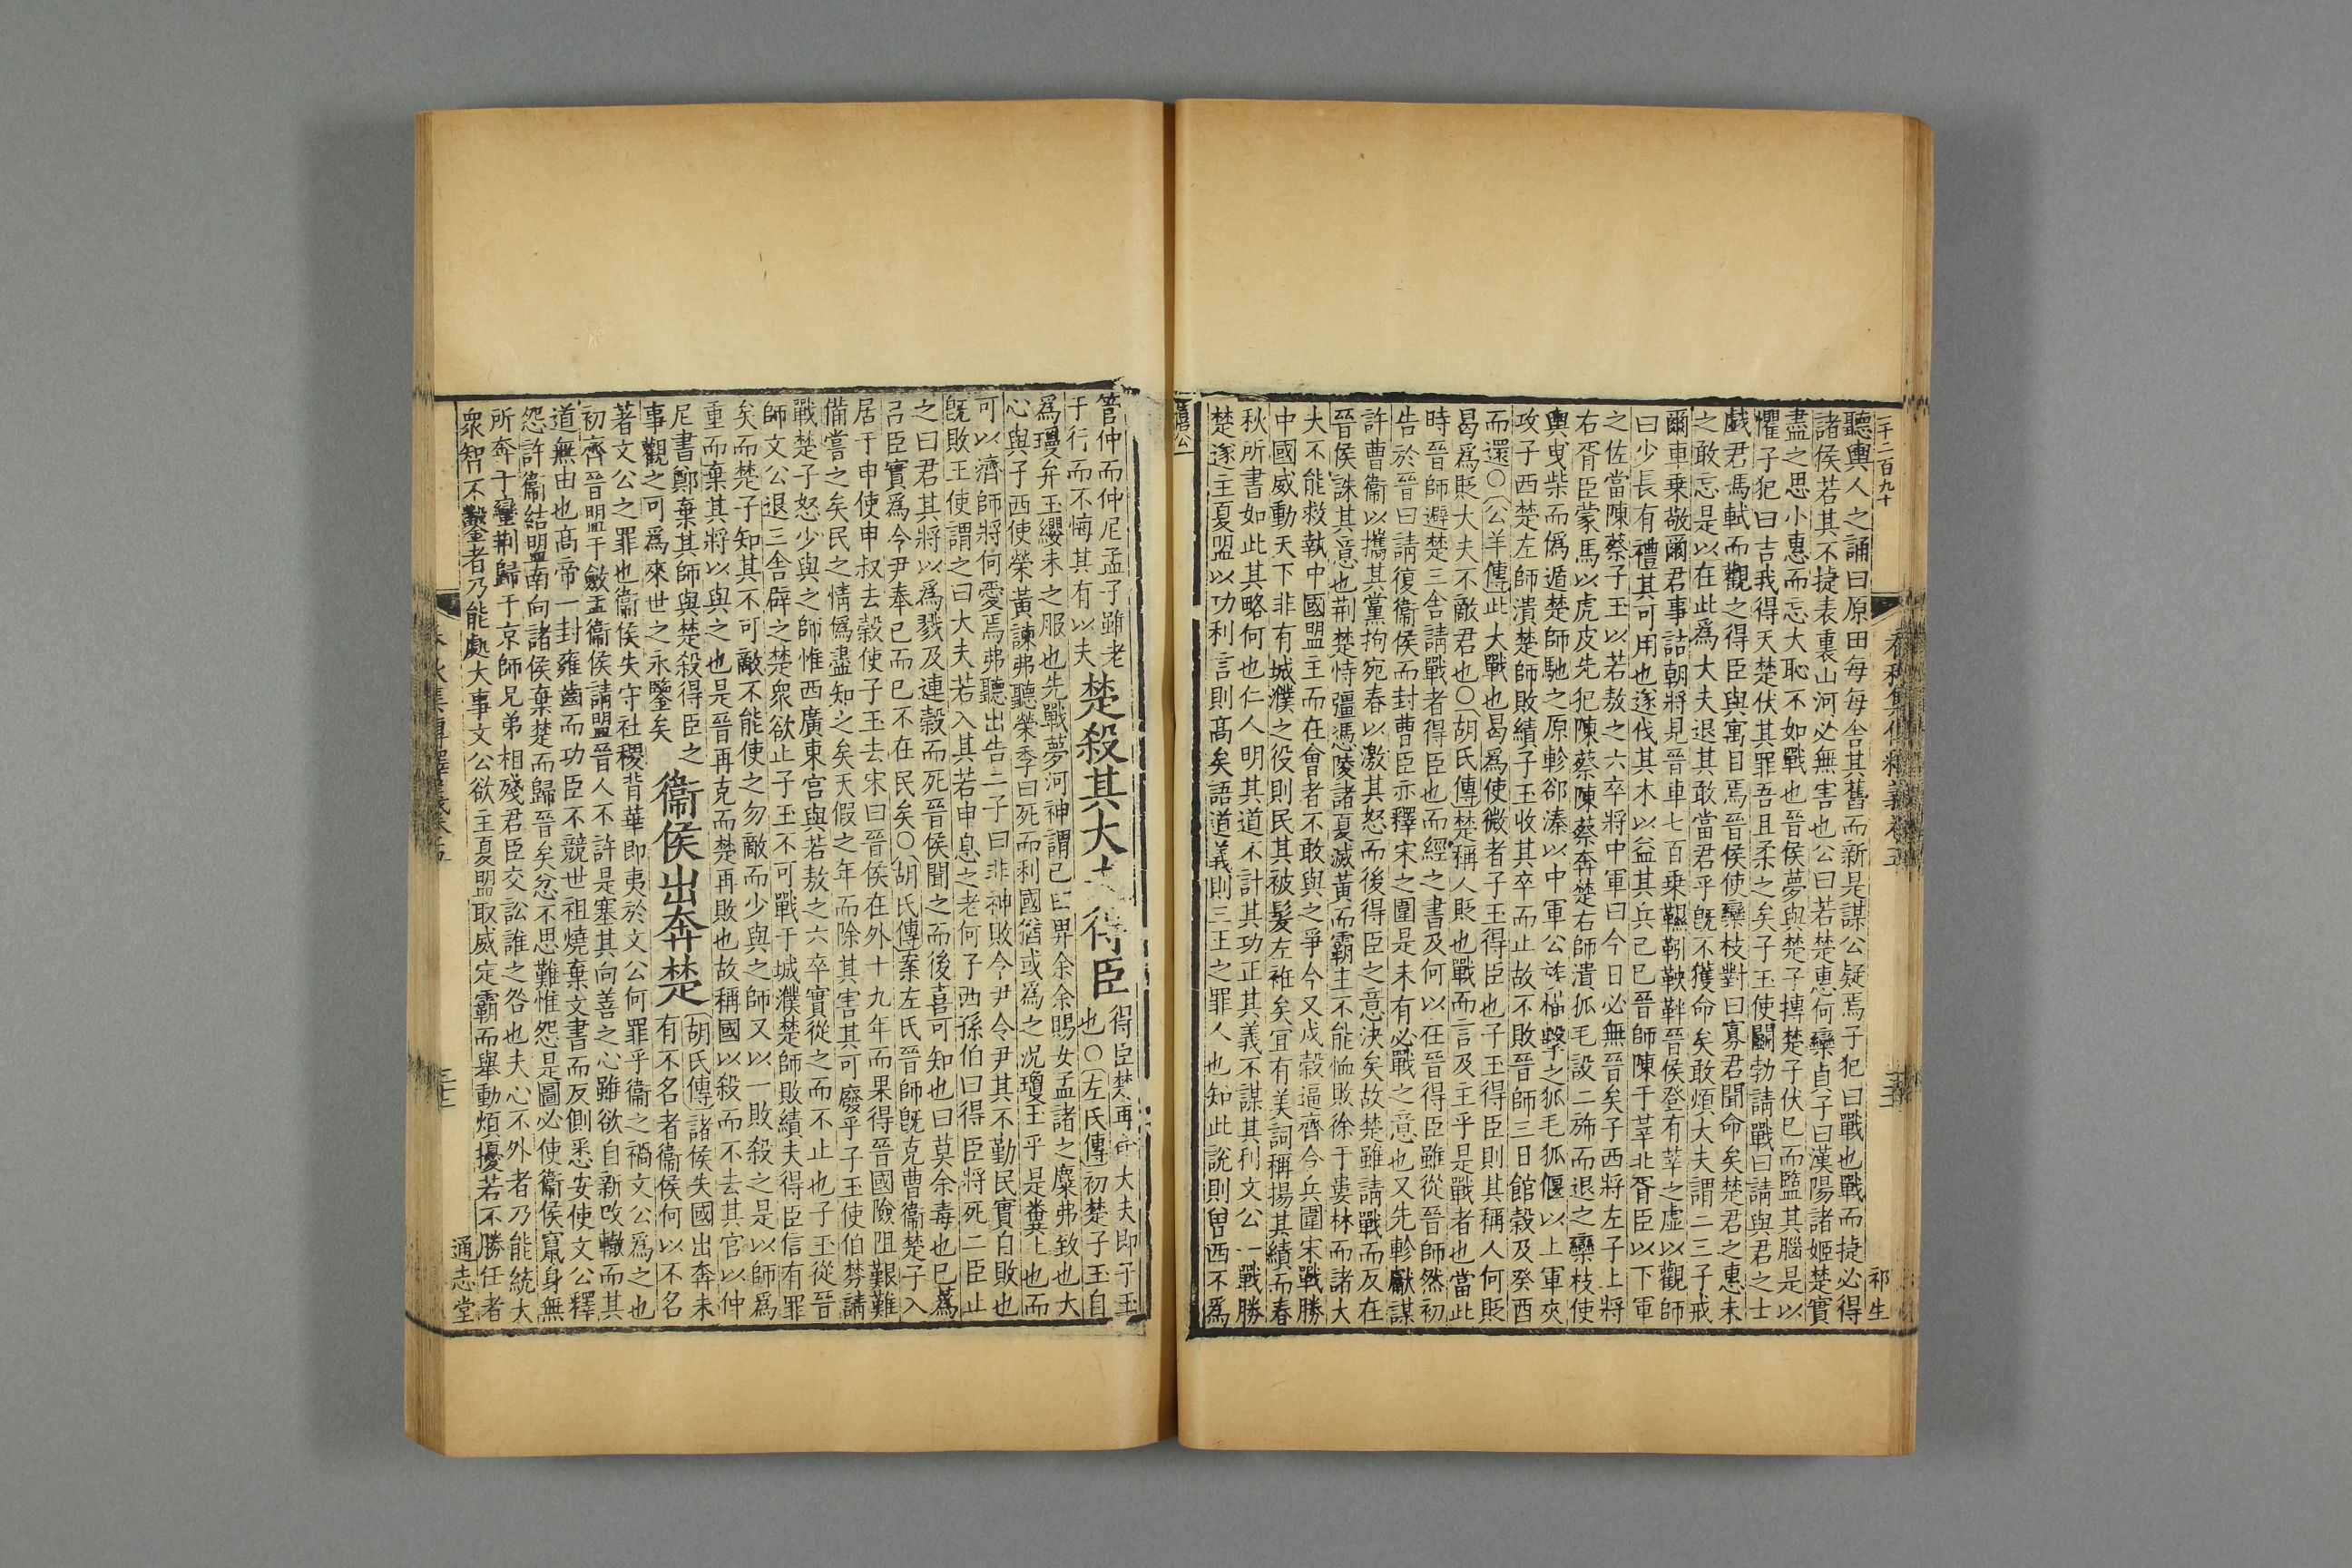 二千二百九十
春秋集傳釋義卷五
三十二
祁生
聽輿人之誦曰原田每每舍其舊而新是謀公疑焉子犯曰戰也戰而捷必得
諸侯若其不捷表裏山河必無害也公曰若楚惠何欒貞子曰漢陽諸姬楚實
盡之思小惠而忘大恥不如戰也晉侯夢與楚子搏楚子伏已而盬其腦是以
懼子犯曰吉我得天楚伏其罪吾且柔之矣子玉使鬭勃請戰曰請與君之士
戲君馮軾而觀之得臣與寓目焉晉侯使欒枝對曰寡君聞命矣楚君之惠未
之敢忘是以在此爲大夫退其敢當君乎旣不獲命矣敢煩大夫謂二三子戒
爾車乗敬爾君事詰朝將見晉車七百乗韅靷鞅靽晉侯登有莘之虛以觀師
曰少長有禮其可用也遂伐其木以益其兵己巳晉師陳于莘北胥臣以下軍
之佐當陳蔡子玉以若敖之六卒將中軍曰今日必無晉矣子西將左子上將
右胥臣蒙馬以虎皮先犯陳蔡陳蔡奔楚右師潰狐毛設二旆而退之欒枝使
輿曳柴而僞遁楚師馳之原軫郤溱以中軍公族橫擊之狐毛狐偃以上軍夾
攻子西楚左師潰楚師敗績子玉收其卒而止故不敗晉師三日館穀及癸酉
而還○公羊傳此大戰也曷爲使微者子玉得臣也子玉得臣則其稱人何貶
曷爲貶大夫不敵君也○胡氏傳楚稱人貶也戰而言及主乎是戰者也當此
時晉師避楚三舍請戰者得臣也而經之書及何以在晉得臣雖從晉師然初
告於晉曰請復衞侯而封曹臣亦釋宋之圍是未有必戰之意也又先軫獻謀
許曹衞以攜其黨拘宛春以激其怒而後得臣之意決矣故楚雖請戰而反在
晉侯誅其意也荆楚恃彊馮陵諸夏滅黃而霸主不能恤敗徐于婁林而諸大
夫不能救執中國盟主而在會者不敢與之爭今又戍穀逼齊合兵圍宋戰勝
中國威動天下非有城濮之役則民其被髪左袵矣宜有美詞稱揚其績而春
秋所書如此其略何也仁人明其道不計其功正其義不謀其利文公一戰勝
楚遂主夏盟以功利言則高矣語道義則三王之罪人也知此說則曽西不爲
僖公
管仲而仲尼孟子雖老
于行而不悔其有以夫 楚殺其大夫得臣 得臣楚再命大夫即子玉
也○左氏傳初楚子玉自
爲瓊弁玉纓未之服也先戰夢河神謂己曰畀余余賜女孟諸之麋弗致也大
心與子西使榮黃諫弗聽榮季曰死而利國猶或爲之況瓊玉乎是糞土也而
可以濟師將何愛焉弗聽出告二子曰非神敗令尹令尹其不勤民實自敗也
旣敗王使謂之曰大夫若入其若申息之老何子西孫伯曰得臣將死二臣止
之曰君其將以爲戮及連穀而死晉侯聞之而後喜可知也曰莫余毒也已蔿
呂臣實爲令尹奉己而已不在民矣○胡氏傳案左氏晉師旣克曹衞楚子入
居于申使申叔去穀使子玉去宋曰晉侯在外十九年而果得晉國險阻艱難
備嘗之矣民之情僞盡知之矣天假之年而除其害其可廢乎子玉使伯棼請
戰楚子怒少與之師惟西廣東宫與若敖之六卒實從之而不止也子玉從晉
師文公退三舍辟之楚衆欲止子玉不可戰于城濮楚師敗績夫得臣信有罪
矣而楚子知其不可敵不能使之勿敵而少與之師又以一敗殺之是以師爲
重而棄其將以與之也是晉再克而楚再敗也故稱國以殺而不去其官以仲
尼書鄭棄其師與楚殺得臣之
事觀之可爲來世之永鑒矣 衞侯出奔楚 胡氏傳諸侯失國出奔未
有不名者衞侯何以不名
著文公之罪也衞侯失守社稷背華即夷於文公何罪乎衞之禍文公爲之也
初齊晉盟于斂盂衞侯請盟晉人不許是塞其向善之心雖欲自新攺轍而其
道無由也高帝一封雍齒而功臣不競世祖燒棄文書而反側悉安使文公釋
怨許衞結盟南向諸侯棄楚而歸晉矣忿不思難惟怨是圖必使衞侯竄身無
所奔于蠻荆歸于京師兄弟相殘君臣交訟誰之咎也夫心不外者乃能統大
衆智不鑿者乃能處大事文公欲主夏盟取威定霸而舉動煩擾若不勝任者
春秋集傳釋義卷五
三十二
通志堂